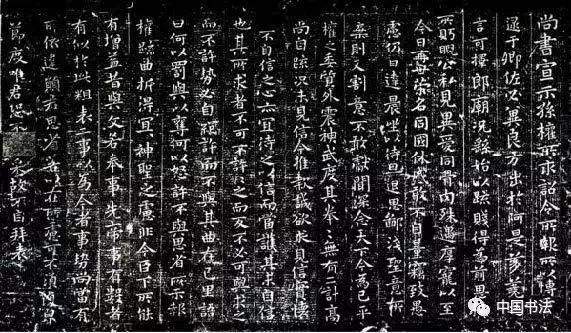 尚書宣示孫權所求詔令所報所以博
逮于卿佐必冀良方出於阿是芻蕘
言可擇郎廟況繇始以疏賤得為前恩
所眄睨公私見異愛同骨肉殊遇厚寵以至
今日再世榮名同國休慼敢不自量竊致愚
慮仍日達晨坐以待旦退思鄙淺聖意所
棄則又割意不敢獻聞深念天下今為已平
權之委質外震神武度其拳拳無有二計高
尚自疏況未見信今推款誠欲求見信實懷
不自信之心亦宜待之以信而當護其未自信
也其所求者不可不許許之而反不必可與求之
而不許勢必自絕許而不與其曲在己里語
曰何以罰與以奪何以怒許不與思省所示報
權疏曲折得宜宜神聖之慮非今臣下所能
有增益昔與文若奉事先帝事有數者
有似於此粗表二事以為今者事勢尚當有
所依違願君思省若以在所慮可不須復貌
節度唯君恐不采故不自拜表
中国书法